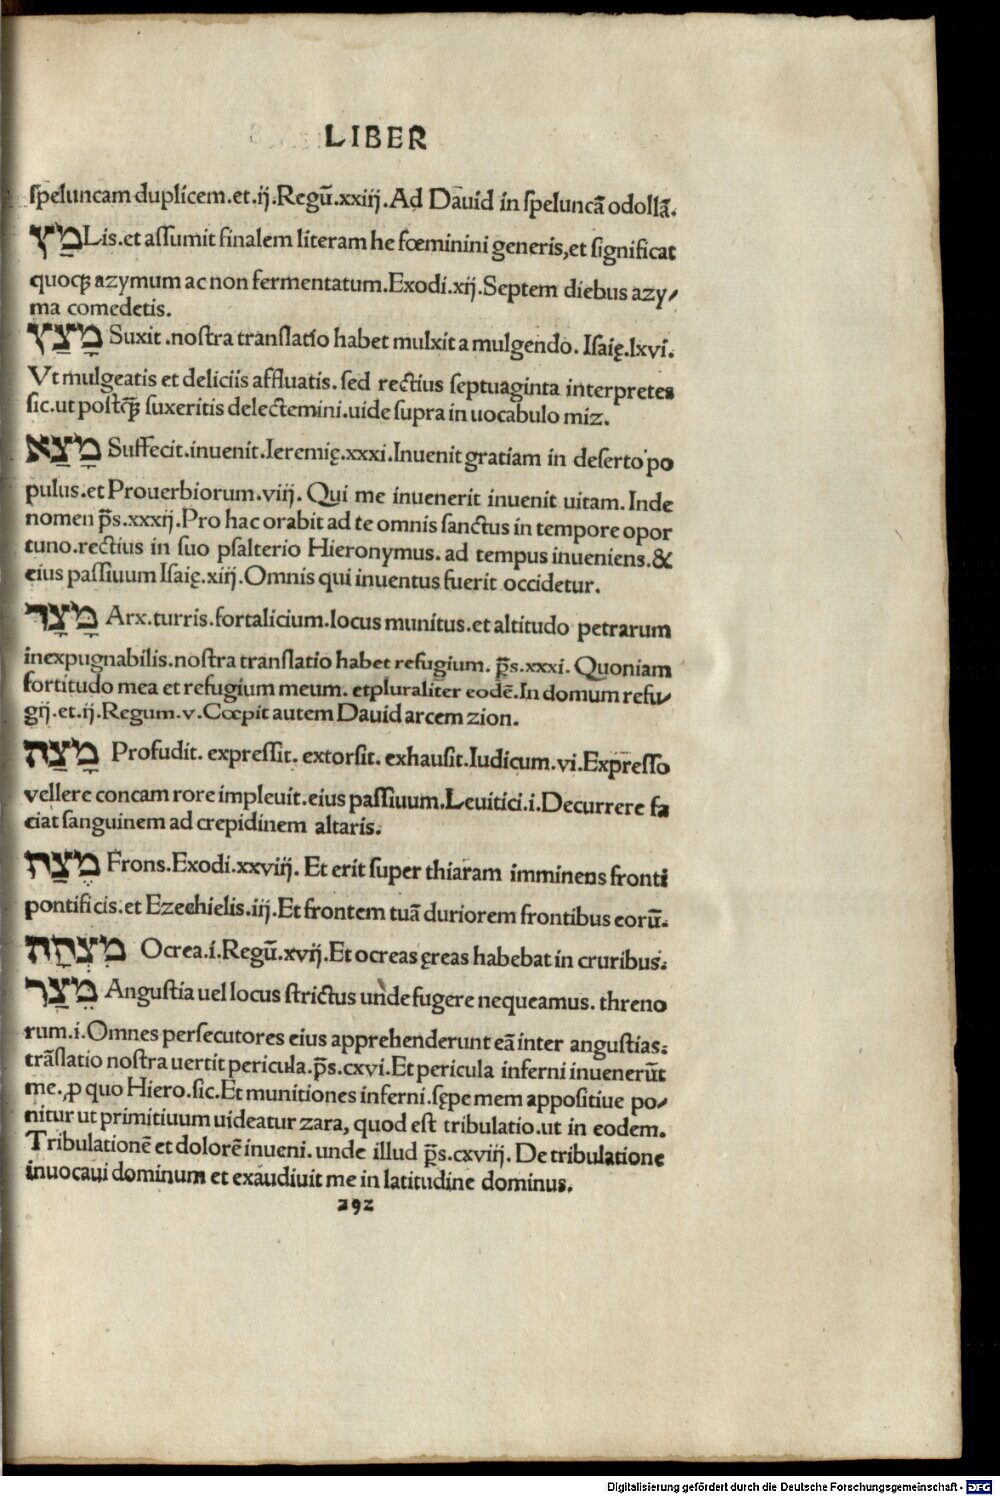 LIBER
ſpeluncam duplicem.et.ij.Regū.xxiij.Ad Dauid in ſpeluncā odollā.
מַץ Lis.et aſſumit finalem literam he fœminini generis,et ſignificat
quoqȝ azymum ac non fermentatum.Exodi.xij.Septem diebus azy⸗
ma comedetis.
מָצַץ Suxit.noſtra tranſlatio habet mulxit a mulgendo. Iſaię.lxvi.
Vt mulgeatis et deliciis affluatis. ſed rectius ſeptuaginta interpretes
ſic.ut poſtqȝ̄ ſuxeritis delectemini.uide ſupra in uocabulo miz.
מָצַא Suffecit.inuenit.Ieremię.xxxi.Inuenit gratiam in deſerto po
pulus.et Prouerbiorum.viij. Qui me inuenerit inuenit uitam. Inde
nomen p̄s.xxxij.Pro hac orabit ad te omnis ſanctus in tempore opor
tuno.rectius in ſuo pſalterio Hieronymus. ad tempus inueniens.&
eius paſſiuum Iſaię.xiij.Omnis qui inuentus fuerit occidetur.
מָצָד Arx.turris.fortalicium.locus munitus.et altitudo petrarum
inexpugnabilis.noſtra tranſlatio habet refugium. p̄s.xxxi. Quoniam
fortitudo mea et refugium meum. et pluraliter eodē.In domum refu⸗
gij.et.ij.Regum.v.Cœpit autem Dauid arcem zion.
מָצַה Profudit. expreſſit. extorſit. exhauſit.Iudicum.vi.Expreſſo
vellere concam rore impleuit.eius paſſiuum.Leuitici.i.Decurrere fa
ciat ſanguinem ad crepidinem altaris.
מֶצַח Frons.Exodi.xxviij. Et erit ſuper thiaram imminens fronti
pontificis.et Ezechielis.iij.Et frontem tuā duriorem frontibus eorū.
מִצְחָה Ocrea.i.Regū.xvij.Et ocreas ęreas habebat in cruribus.
מֵצַר Anguſtia uel locus ſtrictus unde fugere nequeamus. threno
rum.i.Omnes perſecutores eius apprehenderunt eā inter anguſtias.
trāſlatio noſtra uertit pericula.p̄s.cxvi.Et pericula inferni inuenerūt
me.ꝓ quo Hiero.ſic.Et munitiones inferni.ſępe mem appoſitiue po⸗
nitur ut primitiuum uideatur zara, quod eſt tribulatio.ut in eodem.
Tribulationē et dolorē inueni. unde illud p̄s.cxviij. De tribulatione
inuocaui dominum et exaudiuit me in latitudine dominus.
292
Digitalisierung gefördert durch die Deutsche Forschungsgemeinschaft - DFG